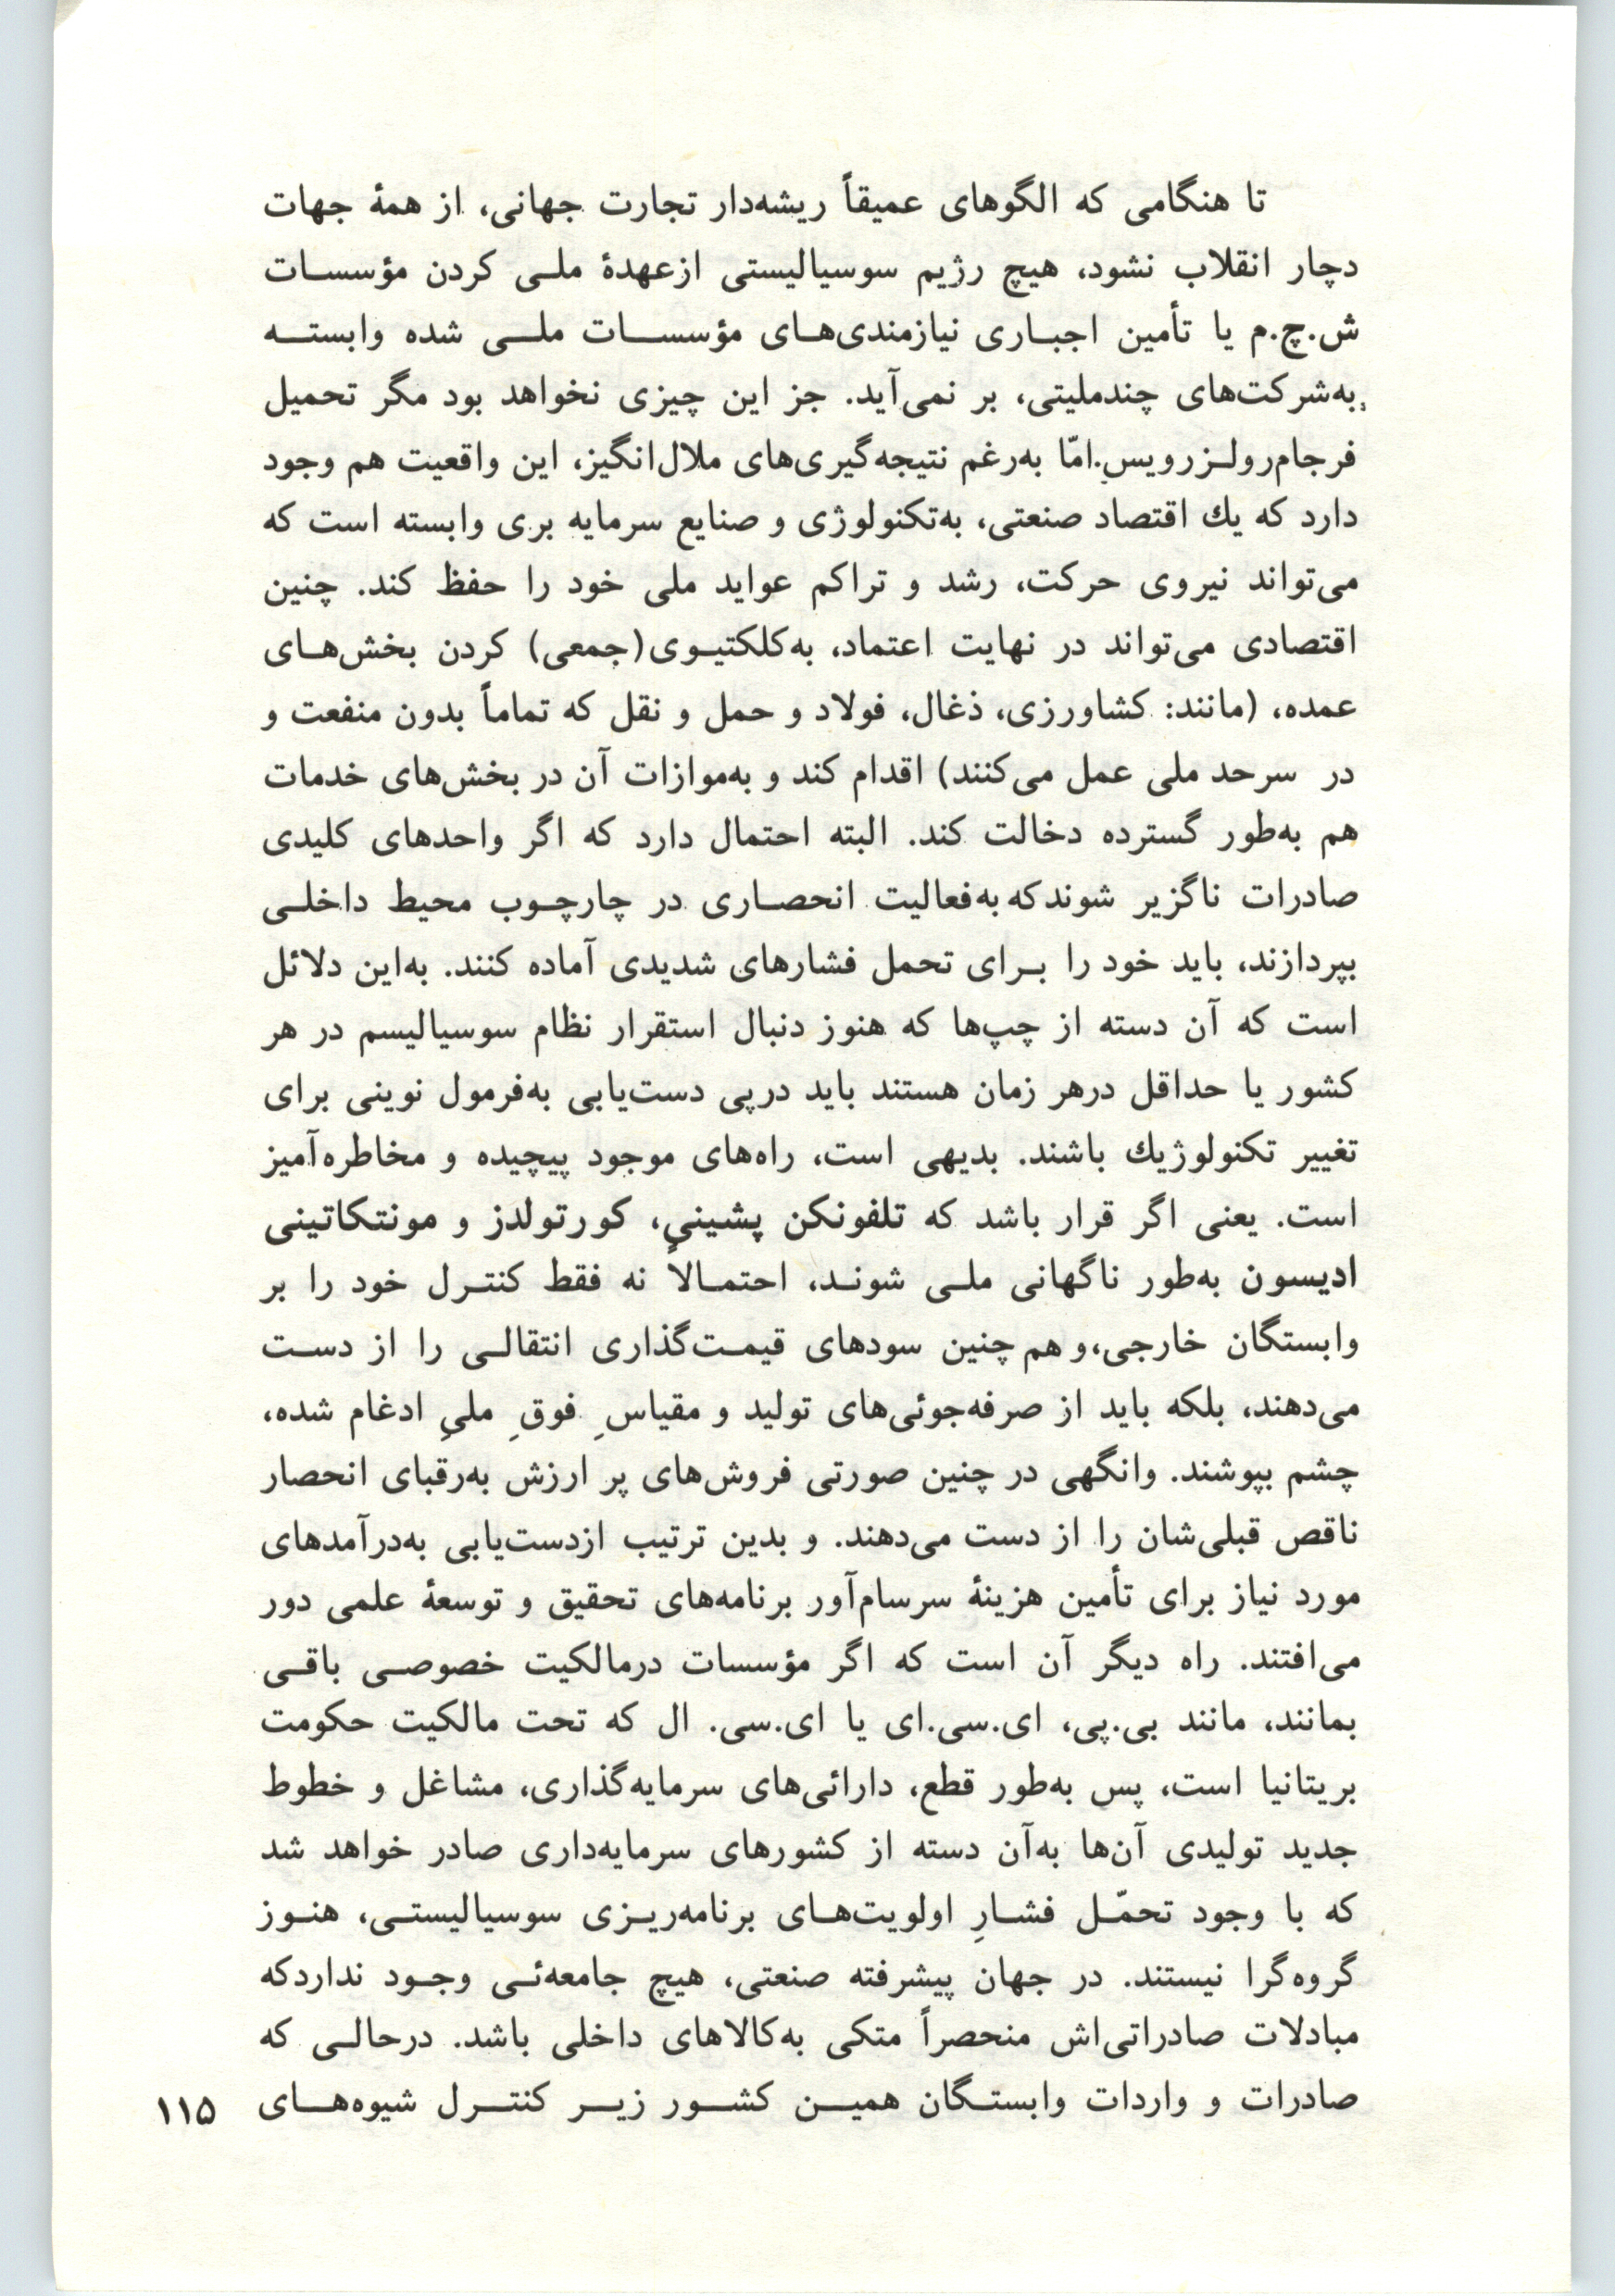 تا هنگامی که الگوهای عمیقاً ریشه‌دار تجارت جهانی، از همهٔ جهات
دچار انقلاب نشود، هیچ رژیم سوسیالیستی ازعهدهٔ ملی کردن مؤسسات
ش.چ.م یا تأمین اجباری نیازمندی‌های مؤسسات ملی شده وابسته
به‌شرکت‌های چندملیتی، بر نمی‌آید. جز این چیزی نخواهد بود مگر تحمیل
فرجام‌رولزرویس.امّا به‌رغم نتیجه‌گیری‌های ملال‌انگیز، این واقعیت هم وجود
دارد که یك اقتصاد صنعتی، به‌تکنولوژی و صنایع سرمایه بری وابسته است که
می‌تواند نیروی حرکت، رشد و تراکم عواید ملی خود را حفظ کند. چنین
اقتصادی می‌تواند در نهایت اعتماد، به‌کلکتیوی(جمعی) کردن بخش‌های
عمده، (مانند: کشاورزی، ذغال، فولاد و حمل و نقل که تماماً بدون منفعت و
در سرحد ملی عمل می‌کنند) اقدام کند و به‌موازات آن در بخش‌های خدمات
هم به‌طور گسترده دخالت کند. البته احتمال دارد که اگر واحدهای کلیدی
صادرات ناگزیر شوندکه به‌فعالیت انحصاری در چارچوب محیط داخلی
بپردازند، باید خود را برای تحمل فشارهای شدیدی آماده کنند. به‌این دلائل
است که آن دسته از چپ‌ها که هنوز دنبال استقرار نظام سوسیالیسم در هر
کشور یا حداقل درهر زمان هستند باید درپی دست‌یابی به‌فرمول نوینی برای
تغییر تکنولوژیك باشند. بدیهی است، راه‌های موجود پیچیده و مخاطره‌آمیز
است. یعنی اگر قرار باشد که تلفونکن پشینی، کورتولدز و مونتکاتینی
ادیسون به‌طور ناگهانی ملی شوند، احتمالاً نه فقط کنترل خود را بر
وابستگان خارجی،و هم چنین سودهای قیمت‌گذاری انتقالی را از دست
می‌دهند، بلکه باید از صرفه‌جوئی‌های تولید و مقیاسِ فوقِ ملیِ ادغام شده،
چشم بپوشند. وانگهی در چنین صورتی فروش‌های پر ارزش به‌رقبای انحصار
ناقص قبلی‌شان را از دست می‌دهند. و بدین ترتیب ازدست‌یابی به‌درآمدهای
مورد نیاز برای تأمین هزینهٔ سرسام‌آور برنامه‌های تحقیق و توسعهٔ علمی دور
می‌افتند. راه دیگر آن است که اگر مؤسسات درمالکیت خصوصی باقی
بمانند، مانند بی.پی، ای.سی.ای یا ای.سی. ال که تحت مالکیت حکومت
بریتانیا است، پس به‌طور قطع، دارائی‌های سرمایه‌گذاری، مشاغل و خطوط
جدید تولیدی آن‌ها به‌آن دسته از کشورهای سرمایه‌داری صادر خواهد شد
که با وجود تحمّل فشارِ اولویت‌های برنامه‌ریزی سوسیالیستی، هنوز
گروه‌گرا نیستند. در جهان پیشرفته صنعتی، هیچ جامعه‌ئی وجود نداردکه
مبادلات صادراتی‌اش منحصراً متکی به‌کالاهای داخلی باشد. درحالی که
صادرات و واردات وابستگان همین کشور زیر کنترل شیوه‌های
۱۱۵